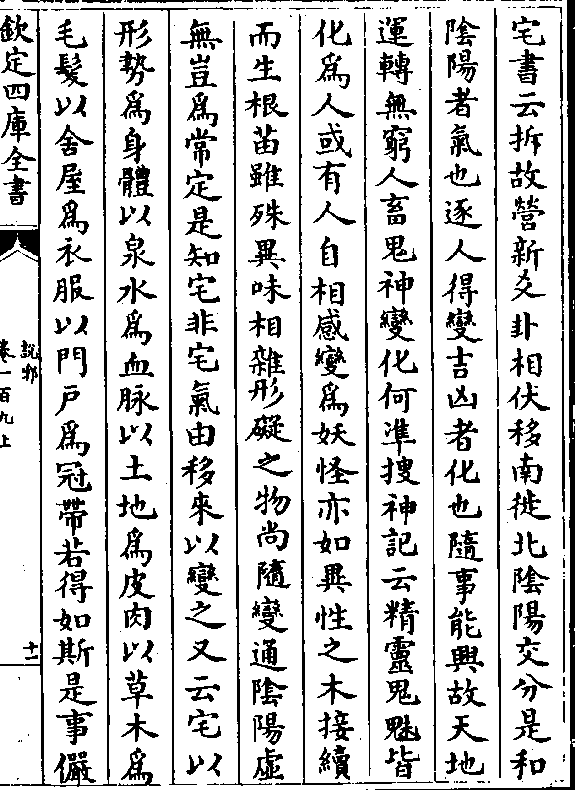 宅書云拆故營新爻卦相伏移南徙北陰陽交分是和
陰陽者氣也逐人得變吉凶者化也隨事能興故天地
運轉無窮人畜鬼神變化何準搜神記云精靈鬼魅皆
化為人或有人自相感變為妖怪亦如異性之木接續
而生根苗雖殊異味相雜形礙之物尚隨變通陰陽虛
無豈為常定是知宅非宅氣由移來以變之又云宅以
形勢為身體以泉水為血脉以土地為皮肉以草木為
毛髮以舍屋為衣服以門戶為冠帶若得如斯是事儼
欽定四庫全書
說郛
卷一百九上
十一